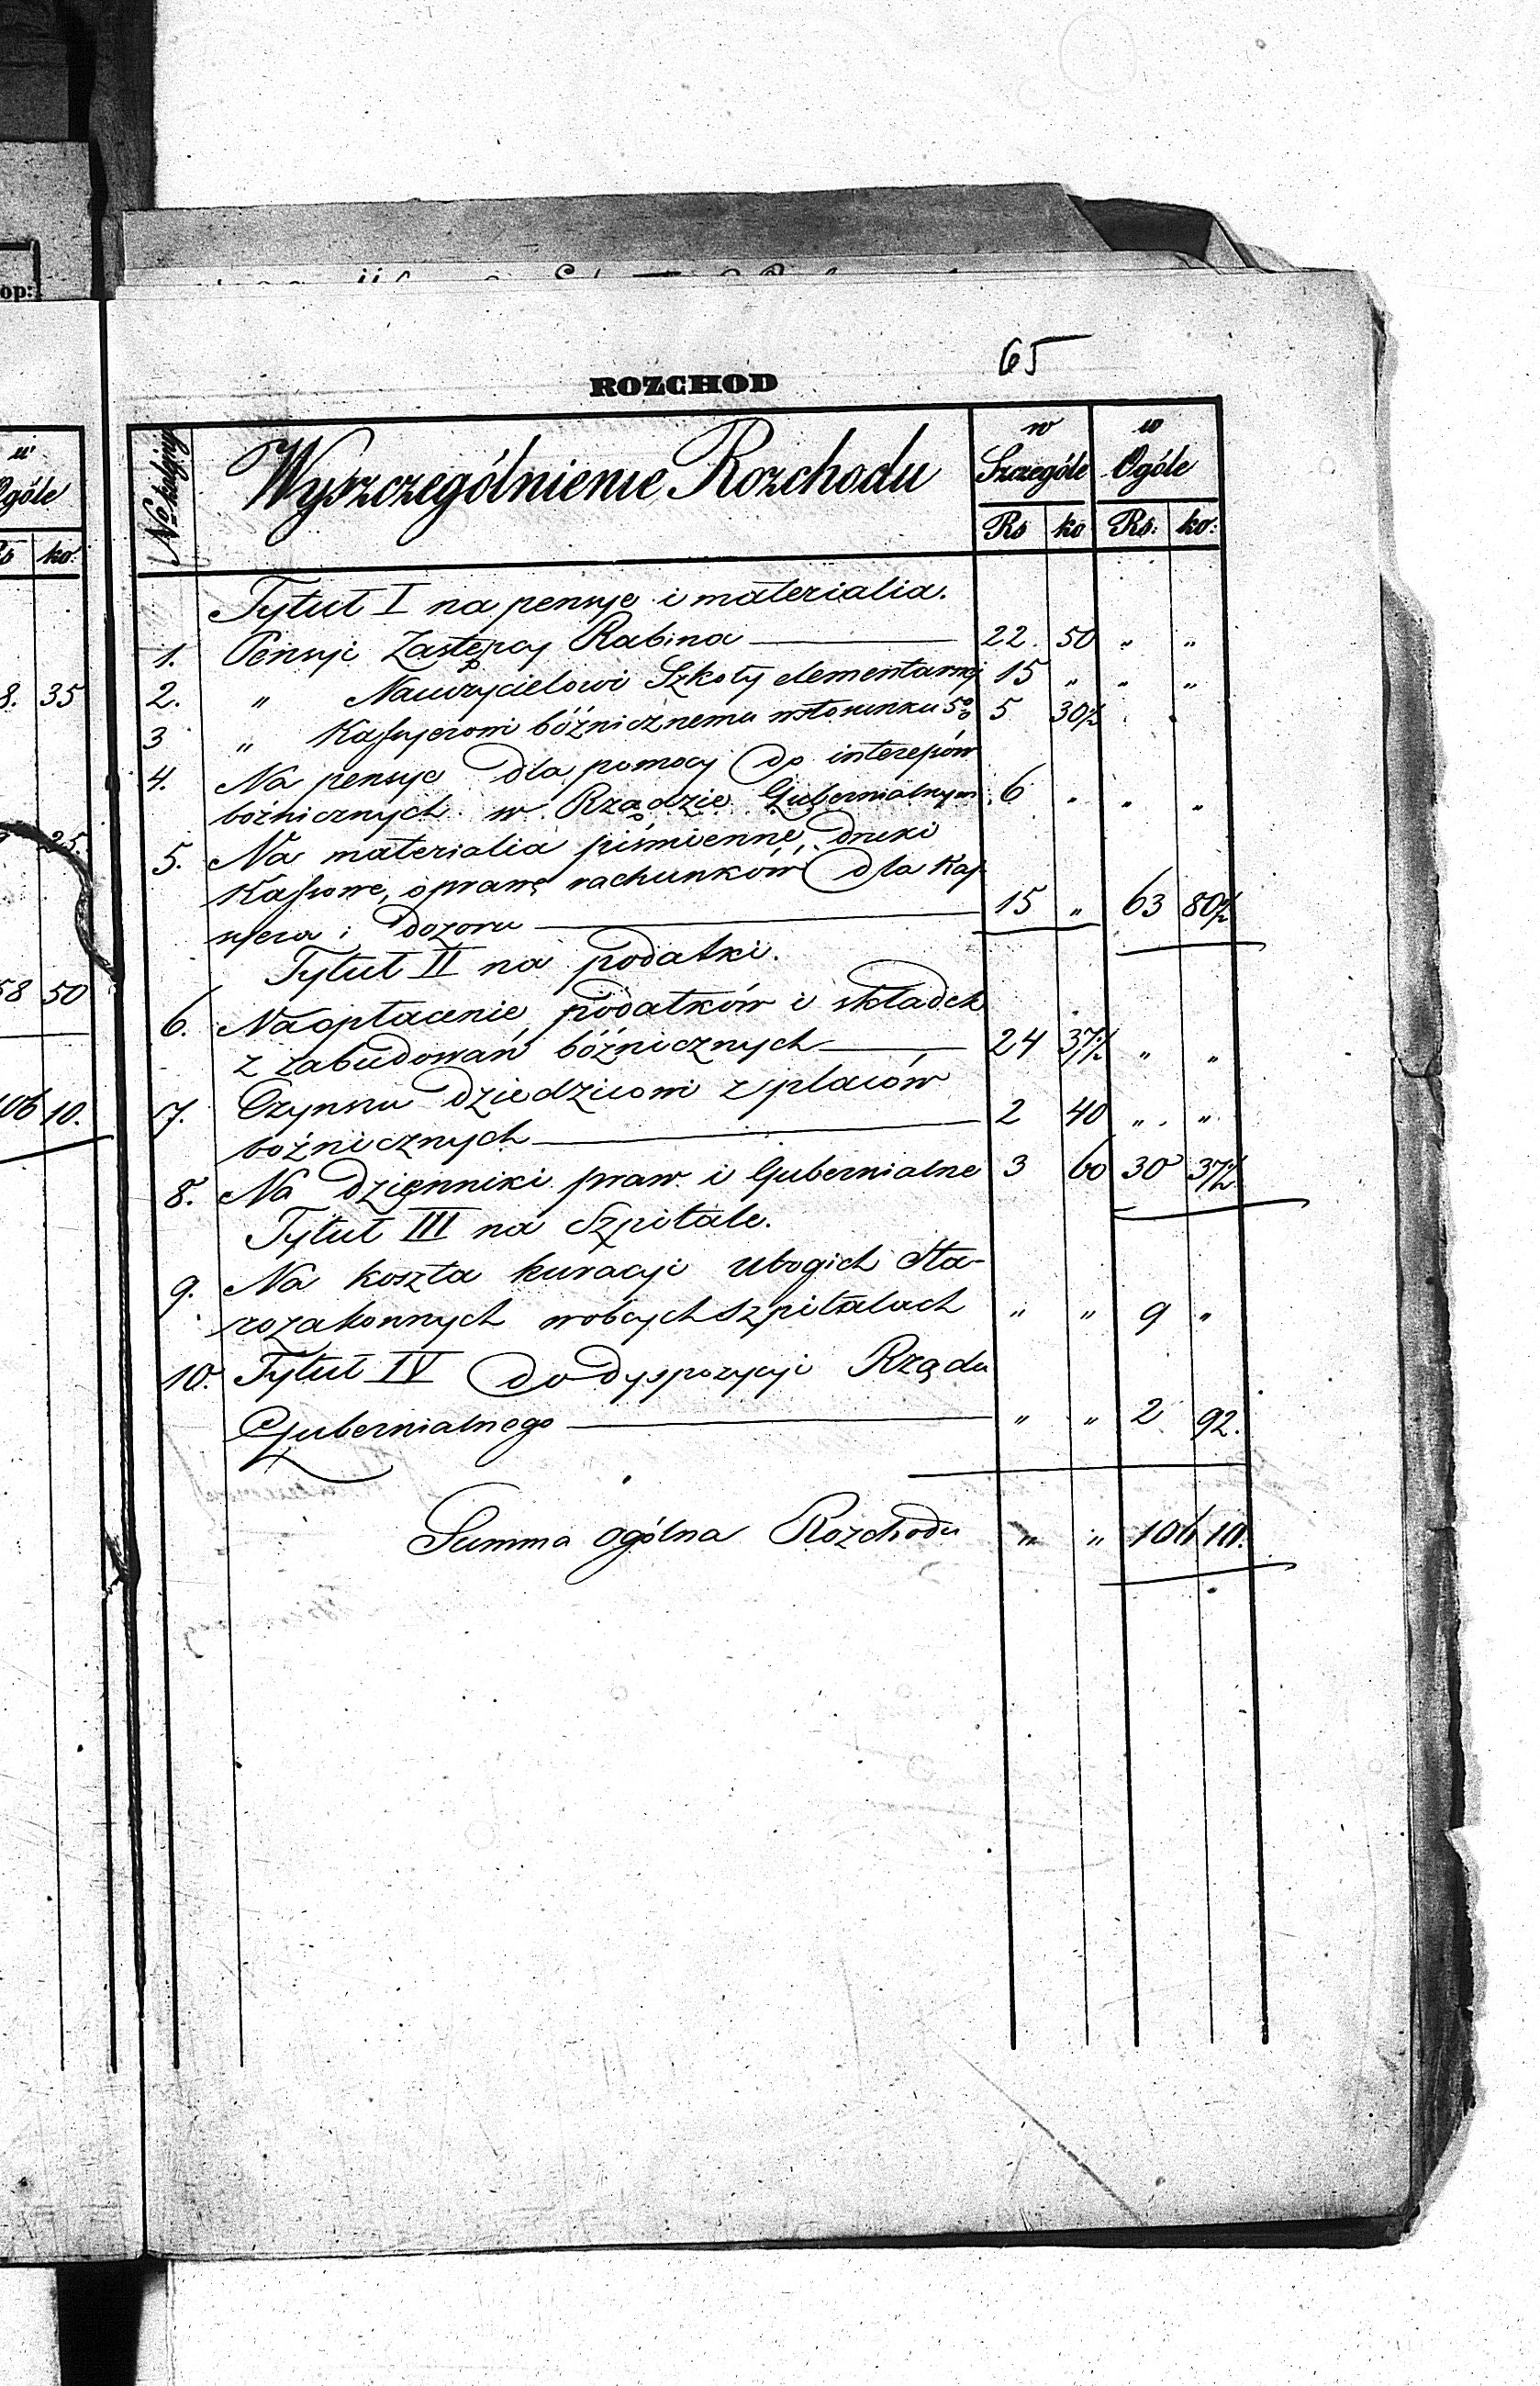 op:
65
ROZCHOD
w
Ogóle
Rs ko:
8. 35
25.
58 50
106 10.
No kolejny
Wyszczególnienie Rozchodu
w Szczególe
w Ogóle
Rs ko Rs: ko:
Tytuł I na pensye i materialia.
1. Pensyi Zastępcy Rabina 22. 50 " "
2. " Nauczycielowi Szkoły elementarnej 15 " " "
3 " Kassyerowi bóźnicznemu w stosunku 5% 5 30½
4. Na pensye dla pomocy do interessów
bóźnicznych w Rządzie Gubernialnym 6 " " "
5. Na materialia piśmienne, druki
Kassowe, oprawę rachunków dla Kas-
syera i Dozoru 15 " 63 80½
Tytuł II na podatki.
6. Na opłacenie podatków i składek
z zabudowań bóźnicznych 24 37½ " "
7. Czynszu dziedzicowi z placów
bóźnicznych 2 40 " "
8. Na dzienniki praw i Gubernialne 3 60 30 37½
Tytuł III na Szpitale.
9. Na koszta kuracyi ubogich Sta-
rozakonnych w obcych szpitalach " " 9 "
10. Tytuł IV do dyspozycyi Rządu
Gubernialnego " " 2 92.
Summa ogólna Rozchodu " " 106 10.